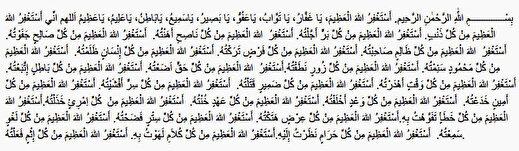 بِسْــــــــــــــــمِ اللَّهِ الرَّحْمَٰنِ الرَّحِيمِ. أَسْتَغْفِرُ اللهَ الْعَظِيمَ، يَا غَفَّارُ، يَا تَوَّابُ، يَا غَفُوُّ، يَا بَصِيرُ، يَاسَمِيعُ، يَابَاطِنُ، يَاعَلِيمُ، يَاعَظِيمُ اللهم انِّي أَسْتَغْفِرُ اللهَ
الْعَظِيمَ مِنْ كُلِّ ذَنْبٍ. أَسْتَغْفِرُ اللهَ الْعَظِيمَ مِنْ كُلِّ بِرٍّ أَجَّلْتُهُ. أَسْتَغْفِرُ اللهَ الْعَظِيمَ مِنْ كُلِّ نَاصِحٍ أَهَنْتُهُ. أَسْتَغْفِرُ اللهَ الْعَظِيمَ مِنْ كُلِّ صَالِحٍ جَفَوْتُهُ.
أَسْتَغْفِرُ اللهَ الْعَظِيمَ مِنْ كُلِّ ظَالِمٍ صَاحَبْتُهُ. أَسْتَغْفِرُ اللهَ الْعَظِيمَ مِنْ كُلِّ فَرْضٍ تَرَكْتُهُ. أَسْتَغْفِرُ اللهَ الْعَظِيمَ مِنْ كُلِّ إِنْسَانٍ ظَلَمْتُهُ. أَسْتَغْفِرُ اللهَ الْعَظِيمَ
مِنْ كُلِّ مَحْمُودٍ سَئِمْتُهُ. أَسْتَغْفِرُ اللهَ الْعَظِيمَ مِنْ كُلِّ زُورٍ نَطَقْتُهُ أَسْتَغْفِرُ اللهَ الْعَظِيمَ مِنْ كُلِّ حَقٍّ أَضَعْتُهُ. أَسْتَغْفِرُ اللهَ الْعَظِيمَ مِنْ كُلِّ بَاطِلٍ اِتَّبَعْتُهُ.
أَسْتَغْفِرُ اللهَ الْعَظِيمَ مِنْ كُلِّ وَقْتٍ أَهْدَرْتُهُ. أَسْتَغْفِرُ اللهَ الْعَظِيمَ مِنْ كُلِّ ضَمِيرٍ قَتَلْتُهُ. أَسْتَغْفِرُ اللهَ الْعَظِيمَ مِنْ كُلِّ سِرٍّ أَفْشَيْتُهُ. أَسْتَغْفِرُ اللهَ الْعَظِيمَ مِنْ كُلِّ
أَمِينٍ خَدَعْتُهُ. أَسْتَغْفِرُ اللهَ الْعَظِيمَ مِنْ كُلِّ وَعْدٍ أَخْلَفْتُهُ. أَسْتَغْفِرُ اللهَ الْعَظِيمَ مِنْ كُلِّ عَهْدٍ خُنْتُهُ. أَسْتَغْفِرُ اللهَ الْعَظِيمَ مِنْ كُلِّ امْرِئٍ خَذَلْتُهُ. أَسْتَغْفِرُ اللهَ
الْعَظِيمَ مِنْ كُلِّ خَطَإٍ تَفَوَّهْتُ بِهِ. أَسْتَغْفِرُ اللهَ الْعَظِيمَ مِنْ كُلِّ عِرْضٍ هَتَكْتُهُ. أَسْتَغْفِرُ اللهَ الْعَظِيمَ مِنْ كُلِّ سِتْرٍ فَضَحْتُهُ. أَسْتَغْفِرُ اللهَ الْعَظِيمَ مِنْ كُلِّ لَغْوٍ
سَمِعْتُهُ. أَسْتَغْفِرُ اللهَ الْعَظِيمَ مِنْ كُلِّ حَرَامٍ نَظَرْتُ إِلَيْهِ. أَسْتَغْفِرُ اللهَ الْعَظِيمَ مِنْ كُلِّ كَلَامٍ لَهَوْتُ بِهِ. أَسْتَغْفِرُ اللهَ الْعَظِيمَ مِنْ كُلِّ إِثْمٍ فَعَلْتُهُ